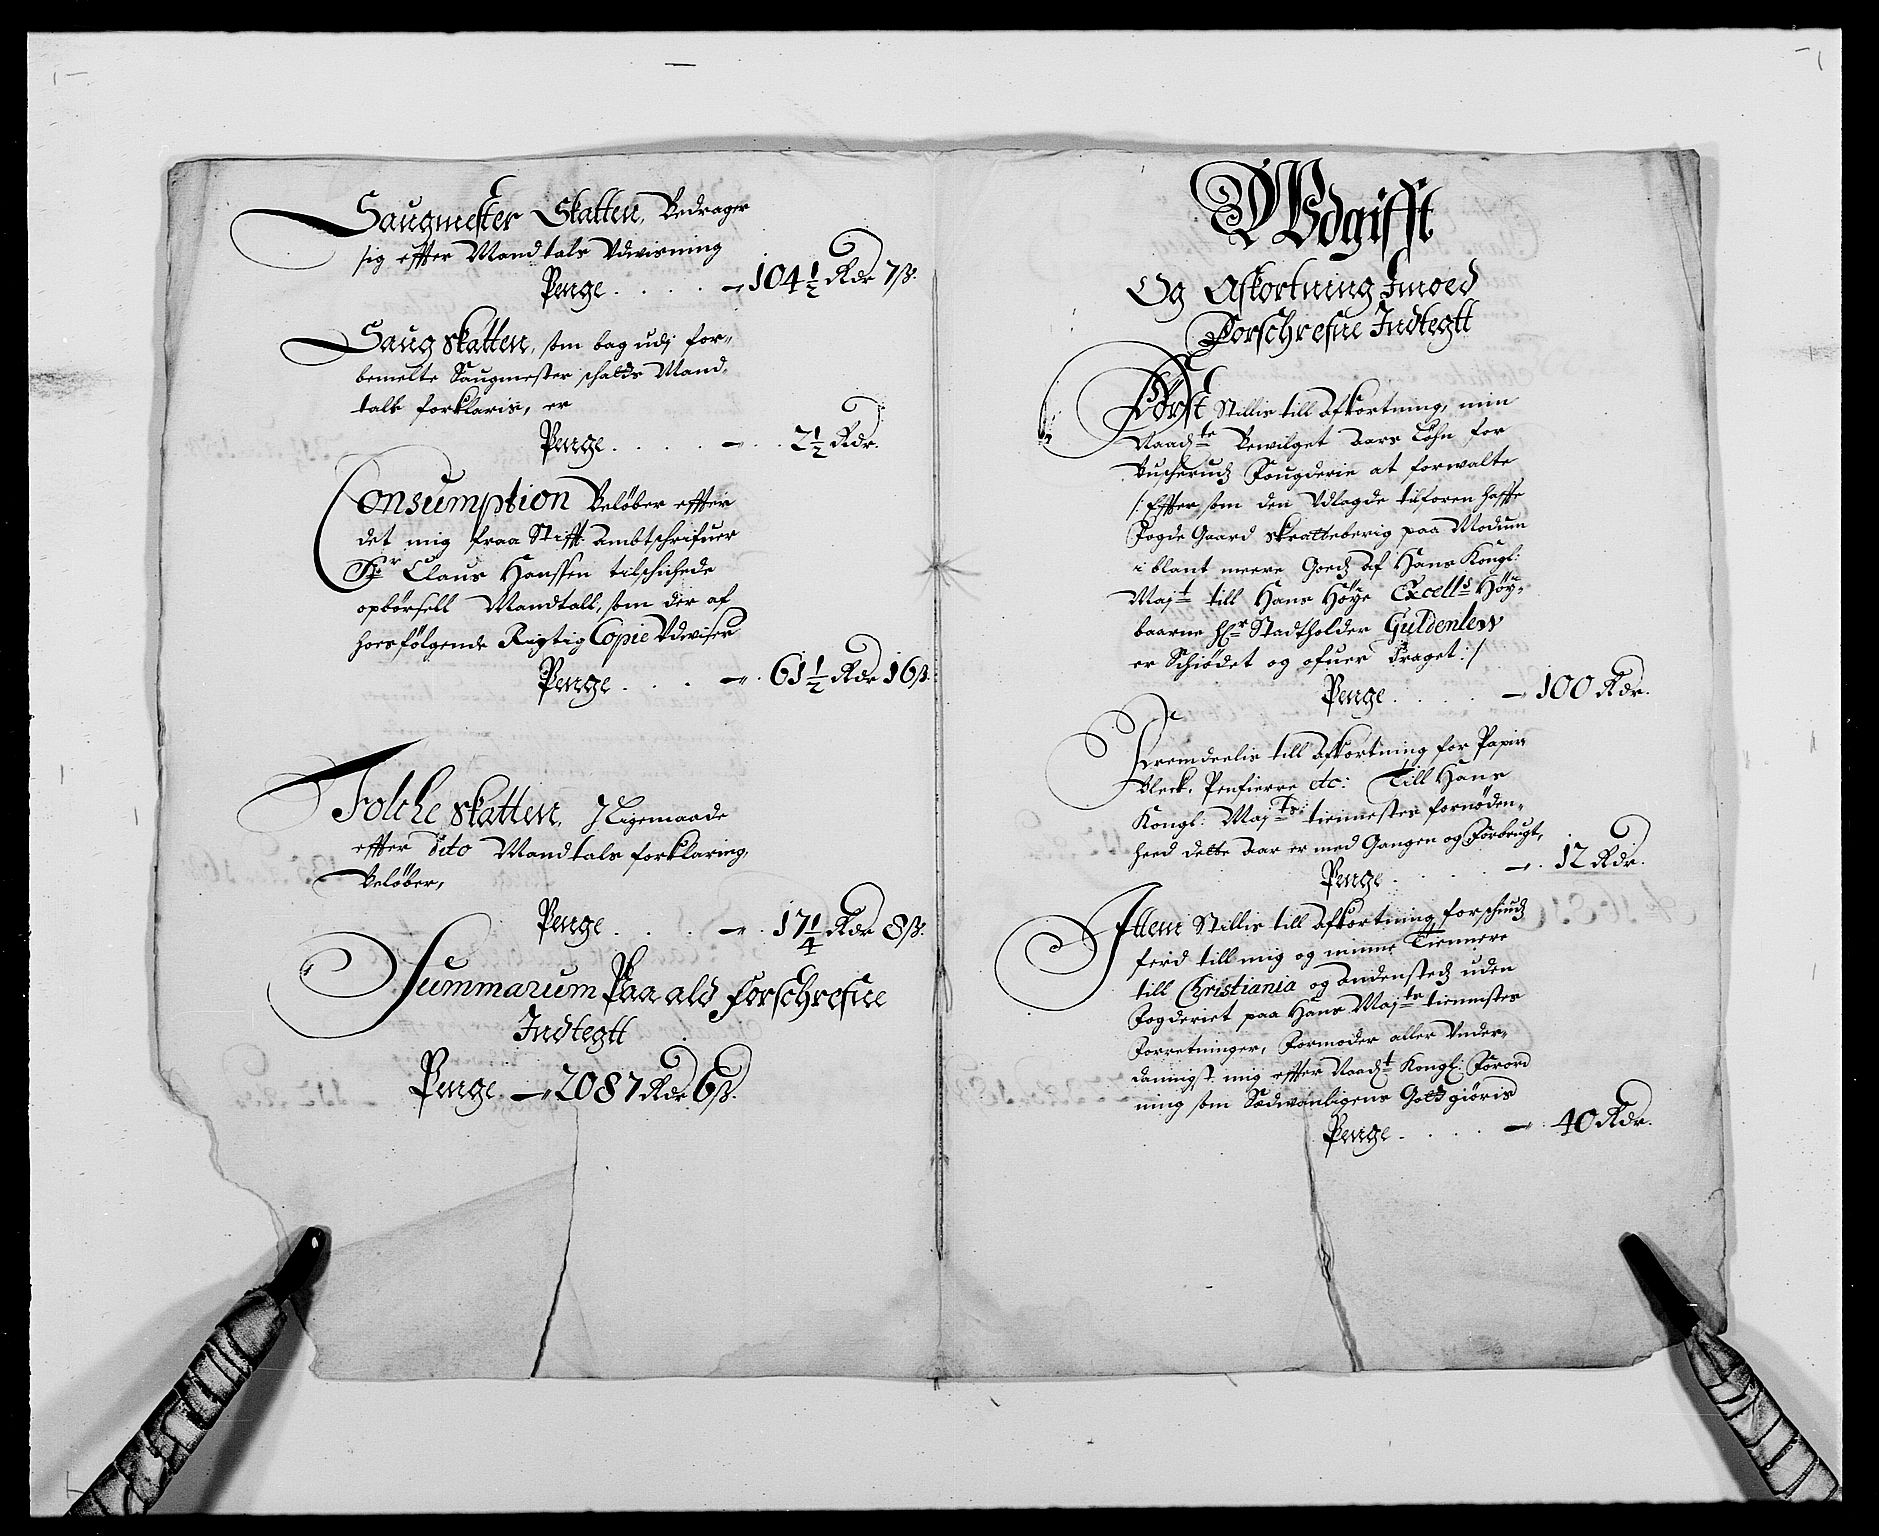 Saugmester Skatten, Bedrager
sig effter Mandtals Udwisning
Penge . . . . - 104 1/2 Rdr 7 ß.
Saug skatten, som bag udj for-
bemelte Saugmester schatds Mand-
talb forklaris, er
Penge . . . . - . . 2 1/2 Rdr.
Consumption Beløber effter
det mig fraa Stifft Ambtschrifuer
Hr Claus Hanssen tilschichede
opbørsell Mandtall, som der af
hosfølgende Rigtig Copie Udwiser
Penge . . . - . 61 1/2 Rdr 16 ß.
Folche skatten, J Ligemaade
effter dito Mandtals forklaring,
Beløber,
Penge . . . . - . 17 1/4 Rdr 8 ß.
Summarum Paa ald forschrefne
Indtegtt
Penge - 2087 Rdr 6 ß.
Udgifft
Og Afkortning Imoed
Forschrefne Indtegtt
Først Stillis till Afkortning, min
Naadte Bewilget Aars Løhn for
Buscherudz Fougderie at forwalte
/: Effter som den Udlagde tilforen haffte
Fogde Gaard Skratteberig paa Modum
i blant meere Goedz af Hans Kongl:
Mayt till Hans Høye Excells Høy-
baarne Hr Stadtholder Guldenlew
er Schiødet og ofuer Draget :/
Penge . . . . . - 100 Rdr.
Fremdeelis till Afkortning for Papir
Bleck, Penfierre etc: Till Hans
Kongl: Mayts: tiennestes fornøden-
heed dette Aar er med Gangen og Forbrugt,
Penge . . . . . - . 12 Rdr.
Ittem Stillis till Afkortning for schudz
ferd till mig og minne Tiennere
till Christiania og andenstedz uden
Fogderiet paa Hans Mayts tiennistes
Forretninger, Formoder aller Under-
danigst mig effter Naadt Kongl: Forord
ning som Sædwanligens Gott giøris
Penge . . . . - . 40 Rdr.